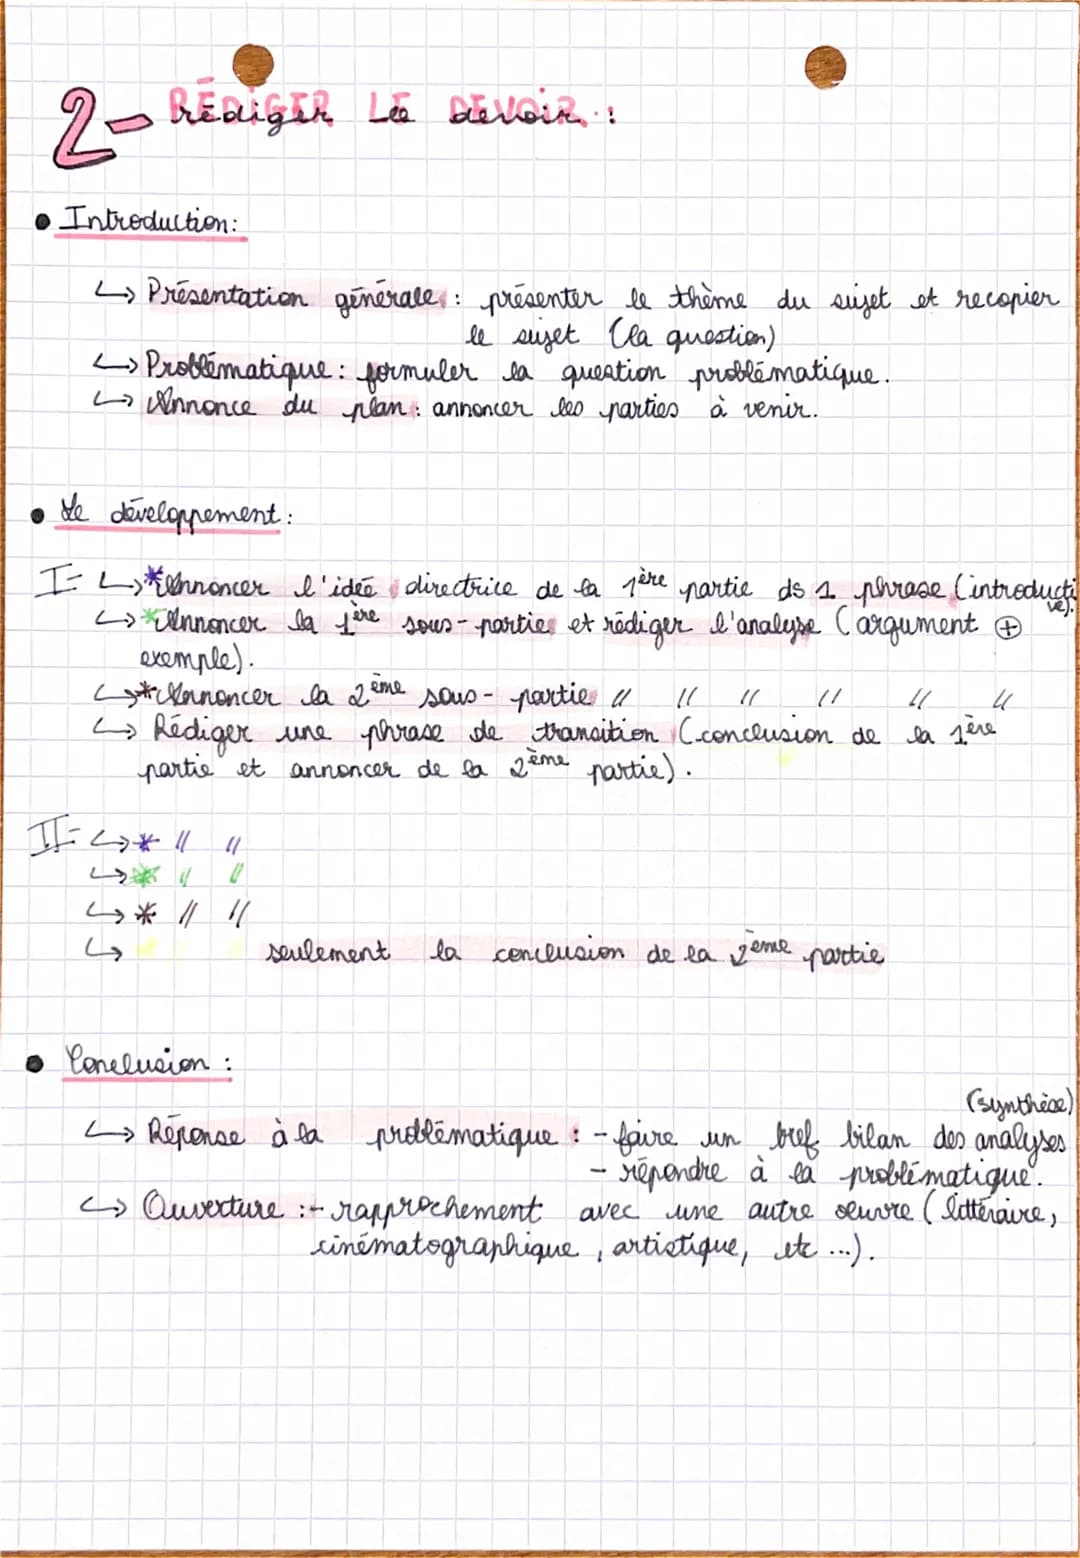 2- RÉDIGER LE DEVOIR :
• Introduction:
↳ Présentation générale : présenter le thème du sujet et recopier
le sujet (la question)
↳ Problématique : formuler la question problématique.
↳ Annonce du plan : annoncer les parties à venir.
• Le développement :
I- ↳ * Annoncer l'idée directrice de la 1ère partie ds 1 phrase (introducti
ve).
↳ * Annoncer la 1ère sous-partie et rédiger l'analyse (argument ⊕
exemple).
↳ * Annoncer la 2ème sous-partie // // // // // //
↳ Rédiger une phrase de transition (conclusion de la 1ère
partie et annoncer de la 2ème partie).
II- ↳ * // //
↳ * // //
↳ * // //
↳ seulement la conclusion de la 2ème partie
• Conclusion :
(synthèse)
↳ Réponse à la problématique : - faire un bref bilan des analyses
- répondre à la problématique.
↳ Ouverture : - rapprochement avec une autre oeuvre (littéraire,
cinématographique, artistique, etc ...).